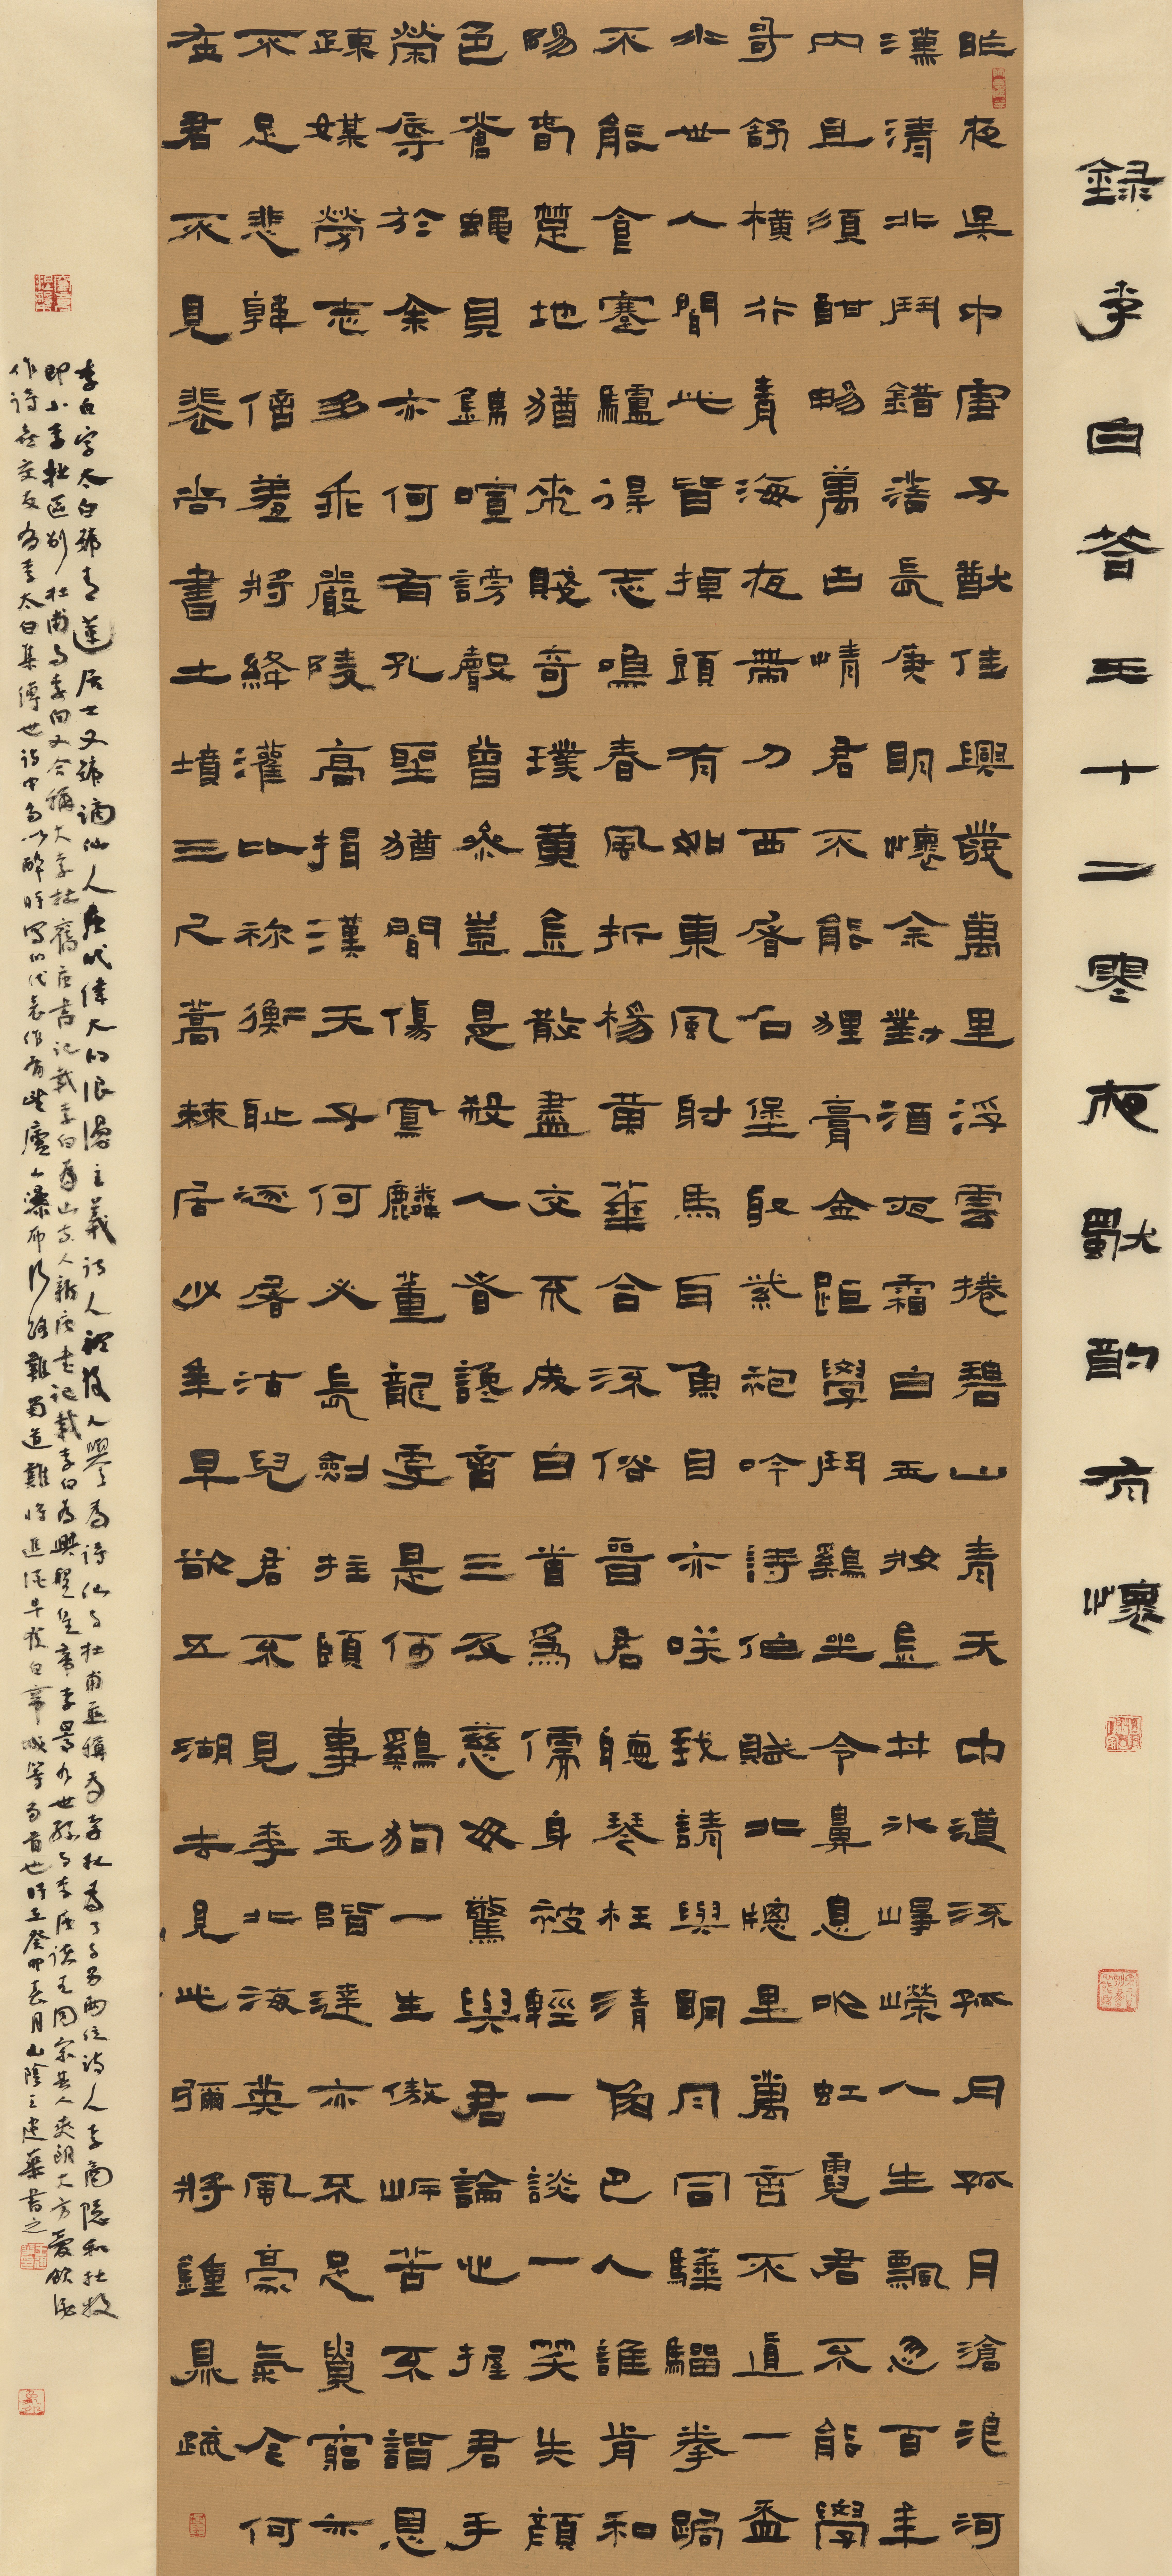 錄李白答王十二寒夜獨酌有懷
昨夜吳中雪子猷佳興發萬里浮雲捲碧山青天中道流孤月孤月滄浪河
漢清北鬥錯落長庚明懷余對酒夜霜白玉牀金井冰崢嶸人生飄忽百年
內且須酣暢萬古情君不能狸膏金距學鬥雞坐令鼻息吹虹霓君不能學
哥舒橫行青海夜帶刀西屠石堡取紫袍吟詩作賦北窗里萬言不直一盃
水世人聞此皆掉頭有如東風射馬耳魚目亦笑我請與明月同驊騮拳跼
不能食蹇驢得志鳴春風折楊黃華合流俗晉君聽琴枉清角巴人誰肯和
陽春楚地猶來賤奇璞黃金散盡交不成白首為儒身被輕一談一笑失顏
色蒼蠅貝錦喧謗聲曾參豈是殺人者讒言三及慈母驚與君論心握君手
榮辱於余亦何有孔聖猶聞傷鳳麟董龍更是何雞狗一生傲岸苦不諧恩
疎媒勞志多乖嚴陵高揖漢天子何必長劍拄頤事玉階達亦不足貴窮亦
不足悲韓信羞將絳灌比禰衡恥逐屠沽兒君不見李北海英風豪氣今何
在君不見裴尚書土墳三尺蒿棘居少年早欲五湖去見此彌將鐘鼎疏
李白字太白號青蓮居士又號謫仙人唐代偉大的浪漫主義詩人被後人譽為詩仙與杜甫並稱為李杜為了與另兩位詩人李商隱和杜牧
即小李杜區別杜甫與李白又合稱大李杜舊唐書記載李白為山東人新唐書記載李白為興聖皇帝李暠九世孫與李唐諸王同宗其人爽朗大方愛飲酒
作詩喜交友有李太白集傳世詩中多以醉時寫的代表作有望廬山瀑布行路難蜀道難將進酒早發白帝城等多首也時在癸卯春月山陰王建華書之